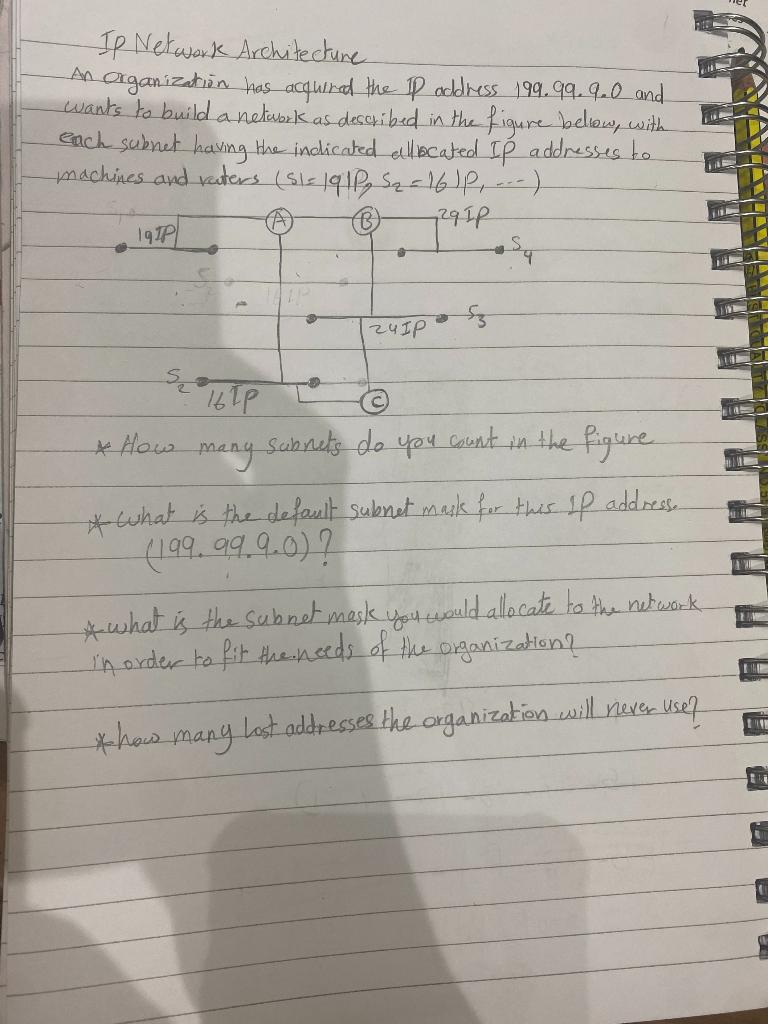 IP Network Architecture
An organization has acquired the IP address 199.99.9.0 and
wants to build a network as described in the figure bellow, with
each subnet having the indicated allocated IP addresses to
machines and routers (S1=19IP, S2=16IP, ---)
A B 29IP
19IP
S4
24IP S3
S2
16IP C
* How many subnets do you count in the figure
* what is the default subnet mask for this IP address.
(199.99.9.0)?
* what is the subnet mask you would allocate to the network
in order to fit the needs of the organization?
* how many Lost addresses the organization will never use?